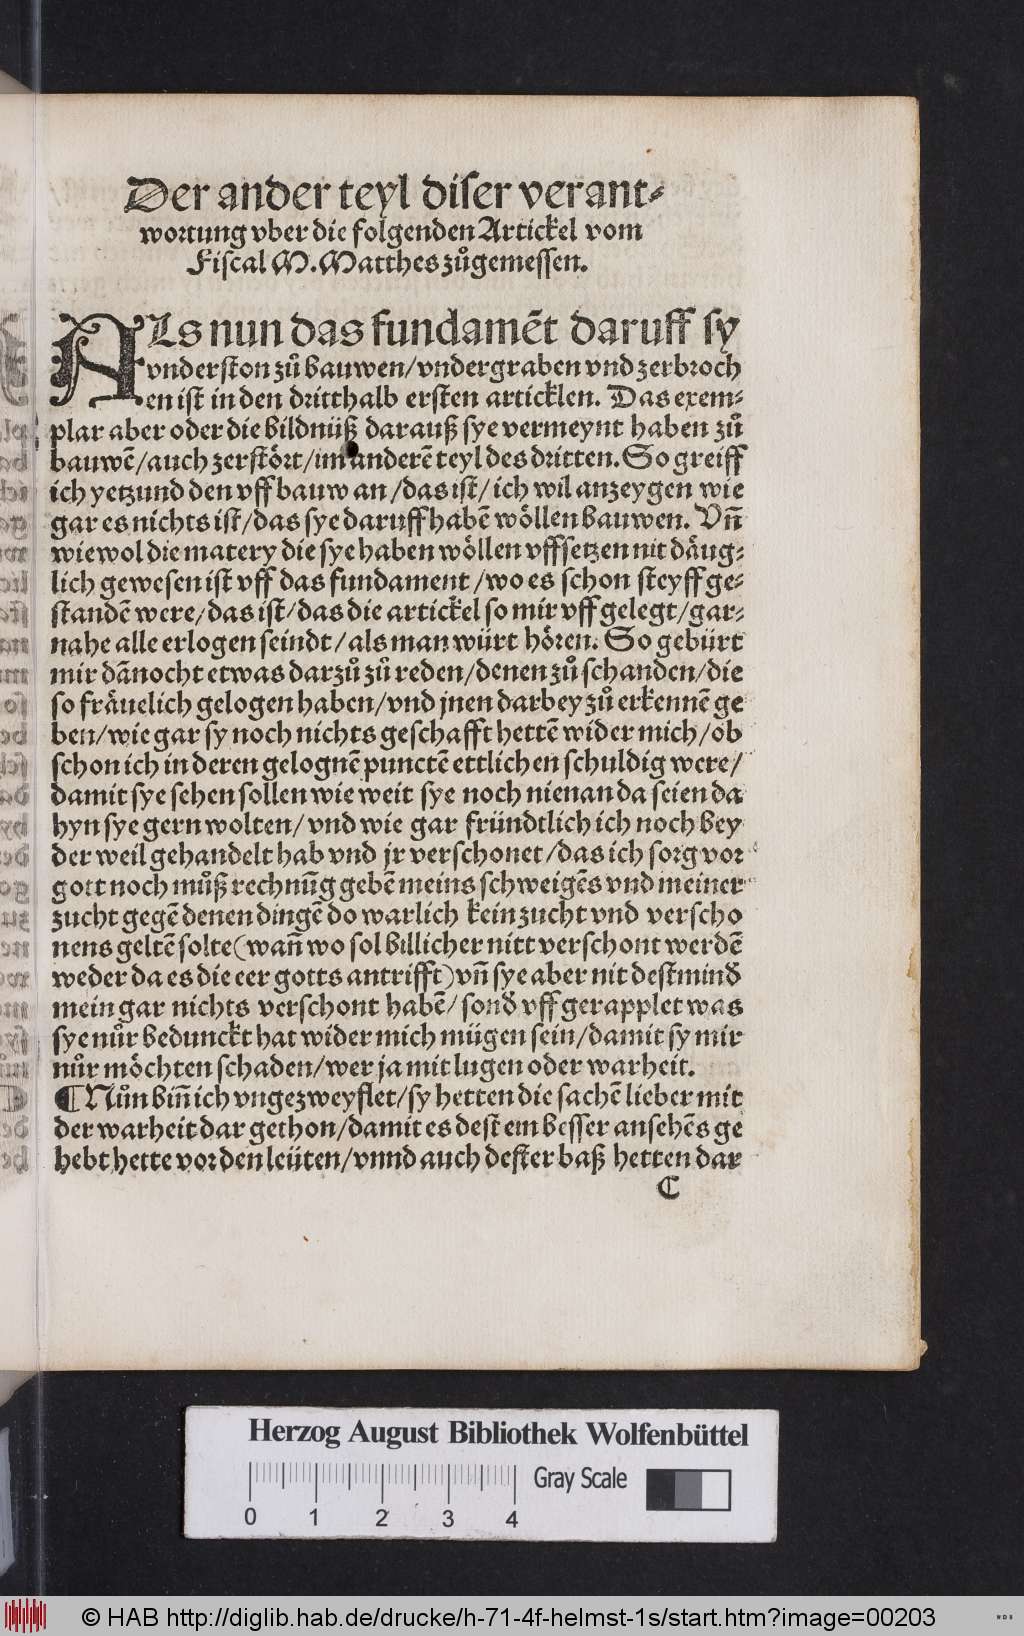 Der ander teyl diser verant⸗
wortung vber die folgenden Artickel vom
Fiscal M. Matthes zůgemessen.
ALs nun das fundamēt daruff sy
vnderston zů bauwen/vndergraben vnd zerbroch
en ist in den dritthalb ersten articklen. Das exem⸗
plar aber oder die bildnüß darauß sye vermeynt haben zů
bauwē/auch zerstört/im anderē teyl des dritten. So greiff
ich yetzund den vffbauw an/das ist/ich wil anzeygen wie
gar es nichts ist/das sye daruff habē wöllen bauwen. Vñ
wiewol die matery die sye haben wöllen vffsetzen nit däug⸗
lich gewesen ist vff das fundament/wo es schon steyff ge⸗
standē were/das ist/das die artickel so mir vffgelegt/gar⸗
nahe alle erlogen seindt/als man würt hören. So gebürt
mir dānocht etwas darzů zů reden/denen zů schanden/die
so fräuelich gelogen haben/vnd jnen darbey zů erkennē ge
ben/wie gar sy noch nichts geschafft hettē wider mich/ob
schon ich in deren gelognē punctē ettlichen schuldig were/
damit sye sehen sollen wie weit sye noch nienan da seien da
hyn sye gern wolten/vnd wie gar fründtlich ich noch bey
der weil gehandelt hab vnd jr verschonet/das ich sorg vor
gott noch můß rechnūg gebē meins schweigēs vnd meiner
zucht gegē denen dingē do warlich kein zucht vnd verscho
nens geltē solte(wañ wo sol billicher nitt verschont werdē
weder da es die eer gotts antrifft)vñ sye aber nit destmind̄
mein gar nichts verschont habē/sond̄ vffgerapplet was
sye nůr bedunckt hat wider mich mügen sein/damit sy mir
nůr möchten schaden/wer ja mit lugen oder warheit.
¶ Nůn biñ ich vngezweyflet/sy hetten die sachē lieber mit
der warheit dar gethon/damit es dest ein besser ansehēs ge
hebt hette vor den leüten/vnnd auch dester baß hetten dar
C
Herzog August Bibliothek Wolfenbüttel
Gray Scale
0 1 2 3 4
© HAB http://diglib.hab.de/drucke/h-71-4f-helmst-1s/start.htm?image=00203